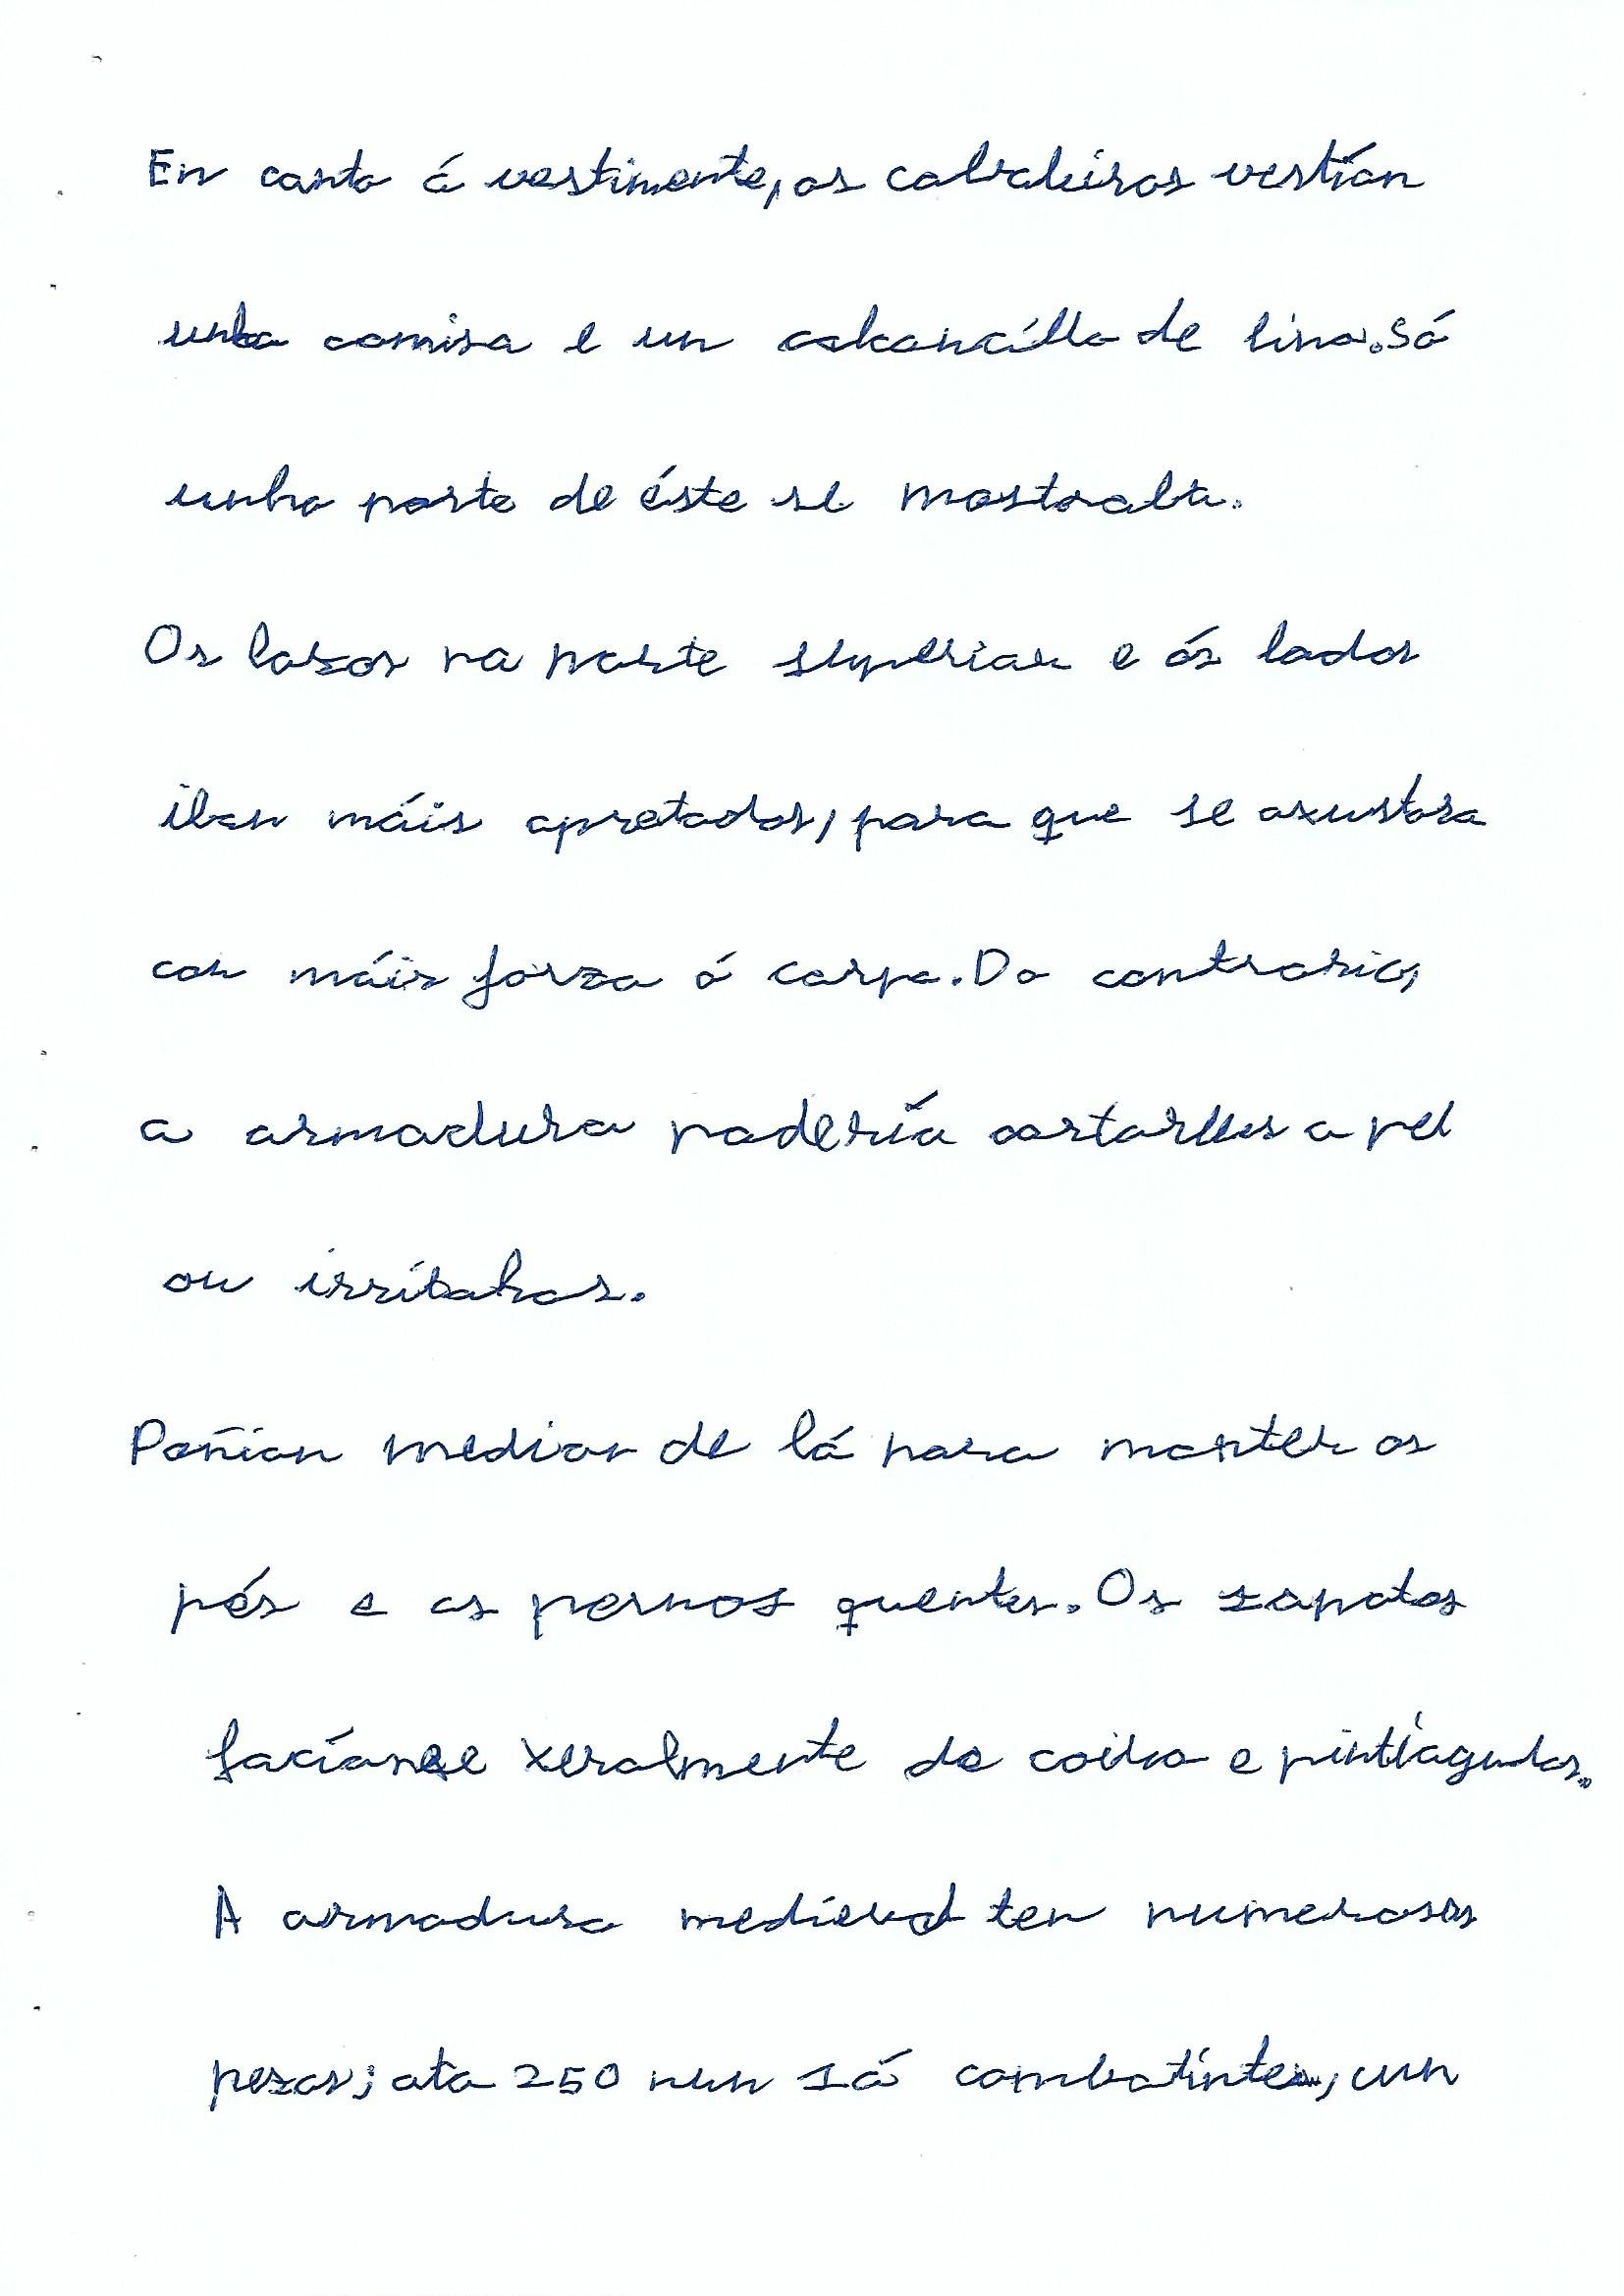 En canto á vestimente, os cabaleiros vestían
unha camisa e un calzoncillo de lino. Só
unha parte de éste se mostraba.
Os lazos na parte superior e ós lados
iban máis apretados, para que se axustara
con máis forza ó corpo. Do contrario,
a armadura podería cortarlles a pel
ou irritalos.
Poñían medias de lá para manter os
pés e as pernas quentes. Os zapatos
facíanse xeralmente de coiro e puntiagudos.
A armadura medieval ten numerosas
pezas; ata 250 nun só combatinte, cun